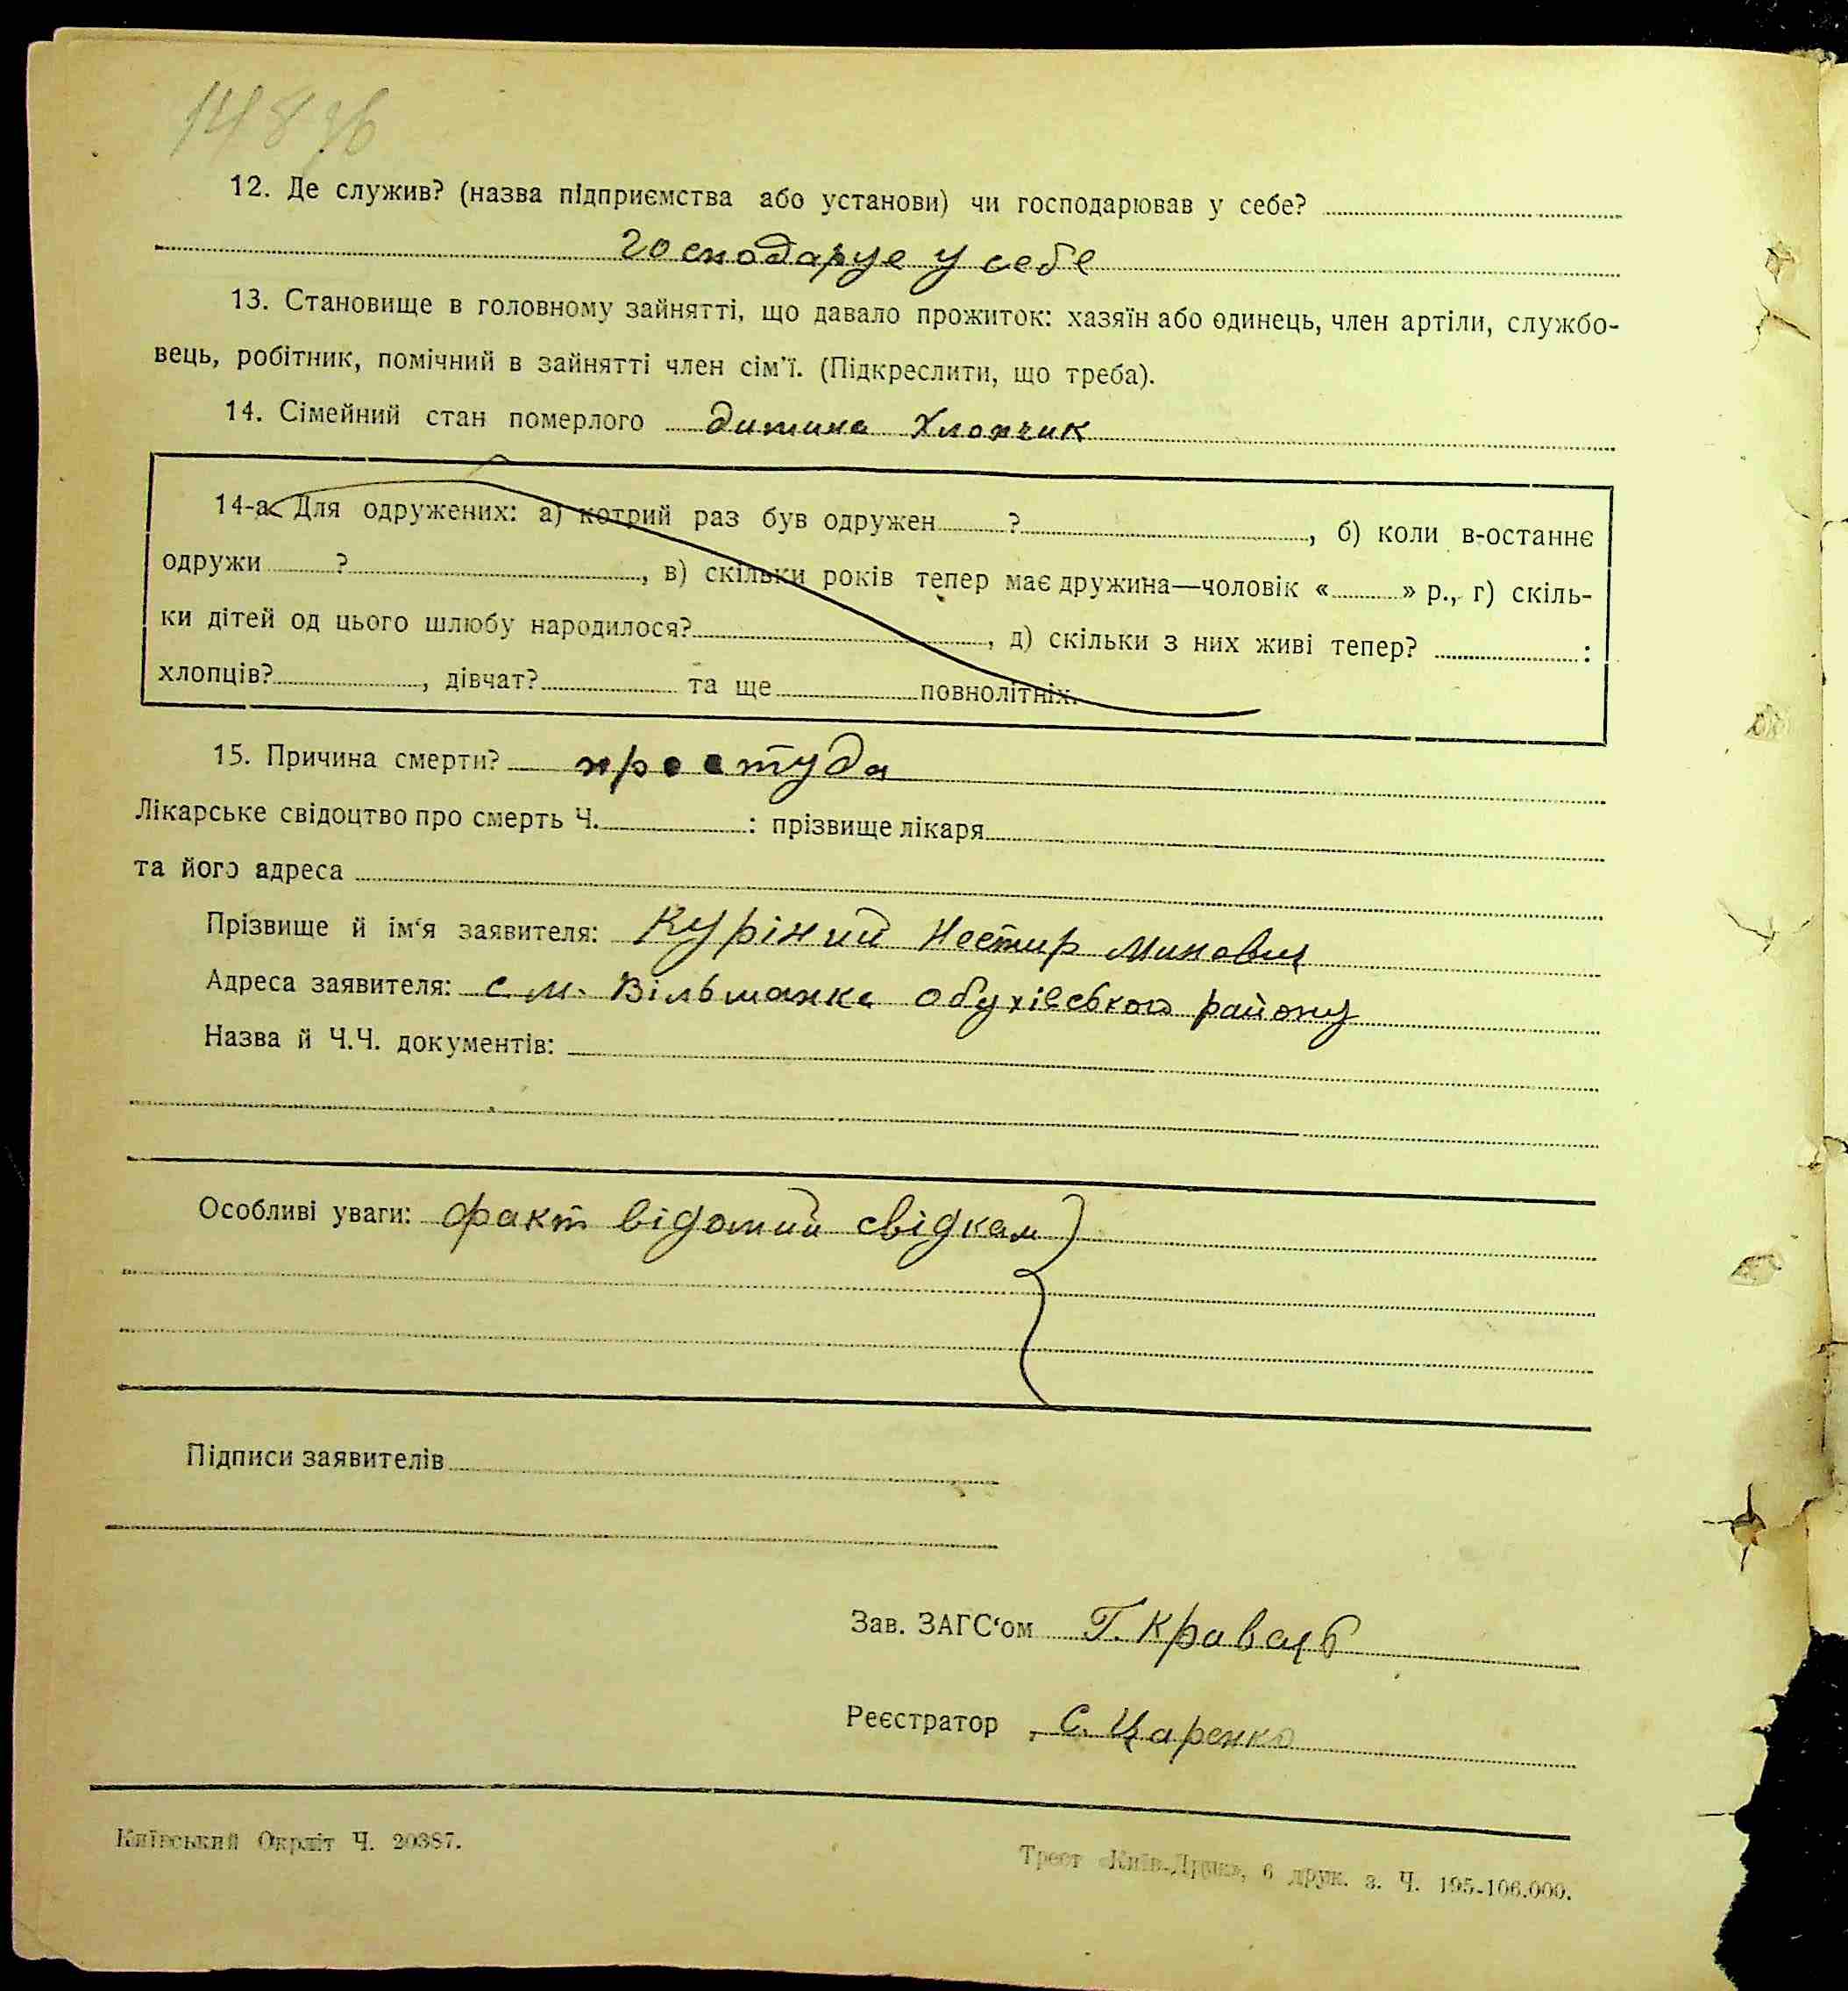 148 зв
12. Де служив? (назва підприємства або установи) чи господарював у себе?
господарує у себе
13. Становище в головному зайнятті, що давало прожиток: хазяїн або одинець, член артіли, службо-
вець, робітник, помічний в зайнятті член сім'ї. (Підкреслити, що треба).
14. Сімейний стан померлого дитина хлопчик
14-а. Для одружених: а) котрий раз був одружен ? , б) коли в-останнє
одружи ? , в) скільки років тепер має дружина—чоловік « » р., г) скіль-
ки дітей од цього шлюбу народилося? , д) скільки з них живі тепер? :
хлопців? , дівчат? та ще повнолітніх.
15. Причина смерти? простуда
Лікарське свідоцтво про смерть Ч. : прізвище лікаря
та його адреса
Прізвище й ім'я заявителя: Куріний Нестир Минович
Адреса заявителя: с М. Вільшанка Обухівського району
Назва й Ч.Ч. документів:
Особливі уваги: факт відомий свідкам
Підписи заявителів
Зав. ЗАГС'ом Г. Кравець
Реєстратор С. Царенко
Київський Окрліт Ч. 20387.
Трест «Київ-Друк», 6 друк. з. Ч. 195-106.000.